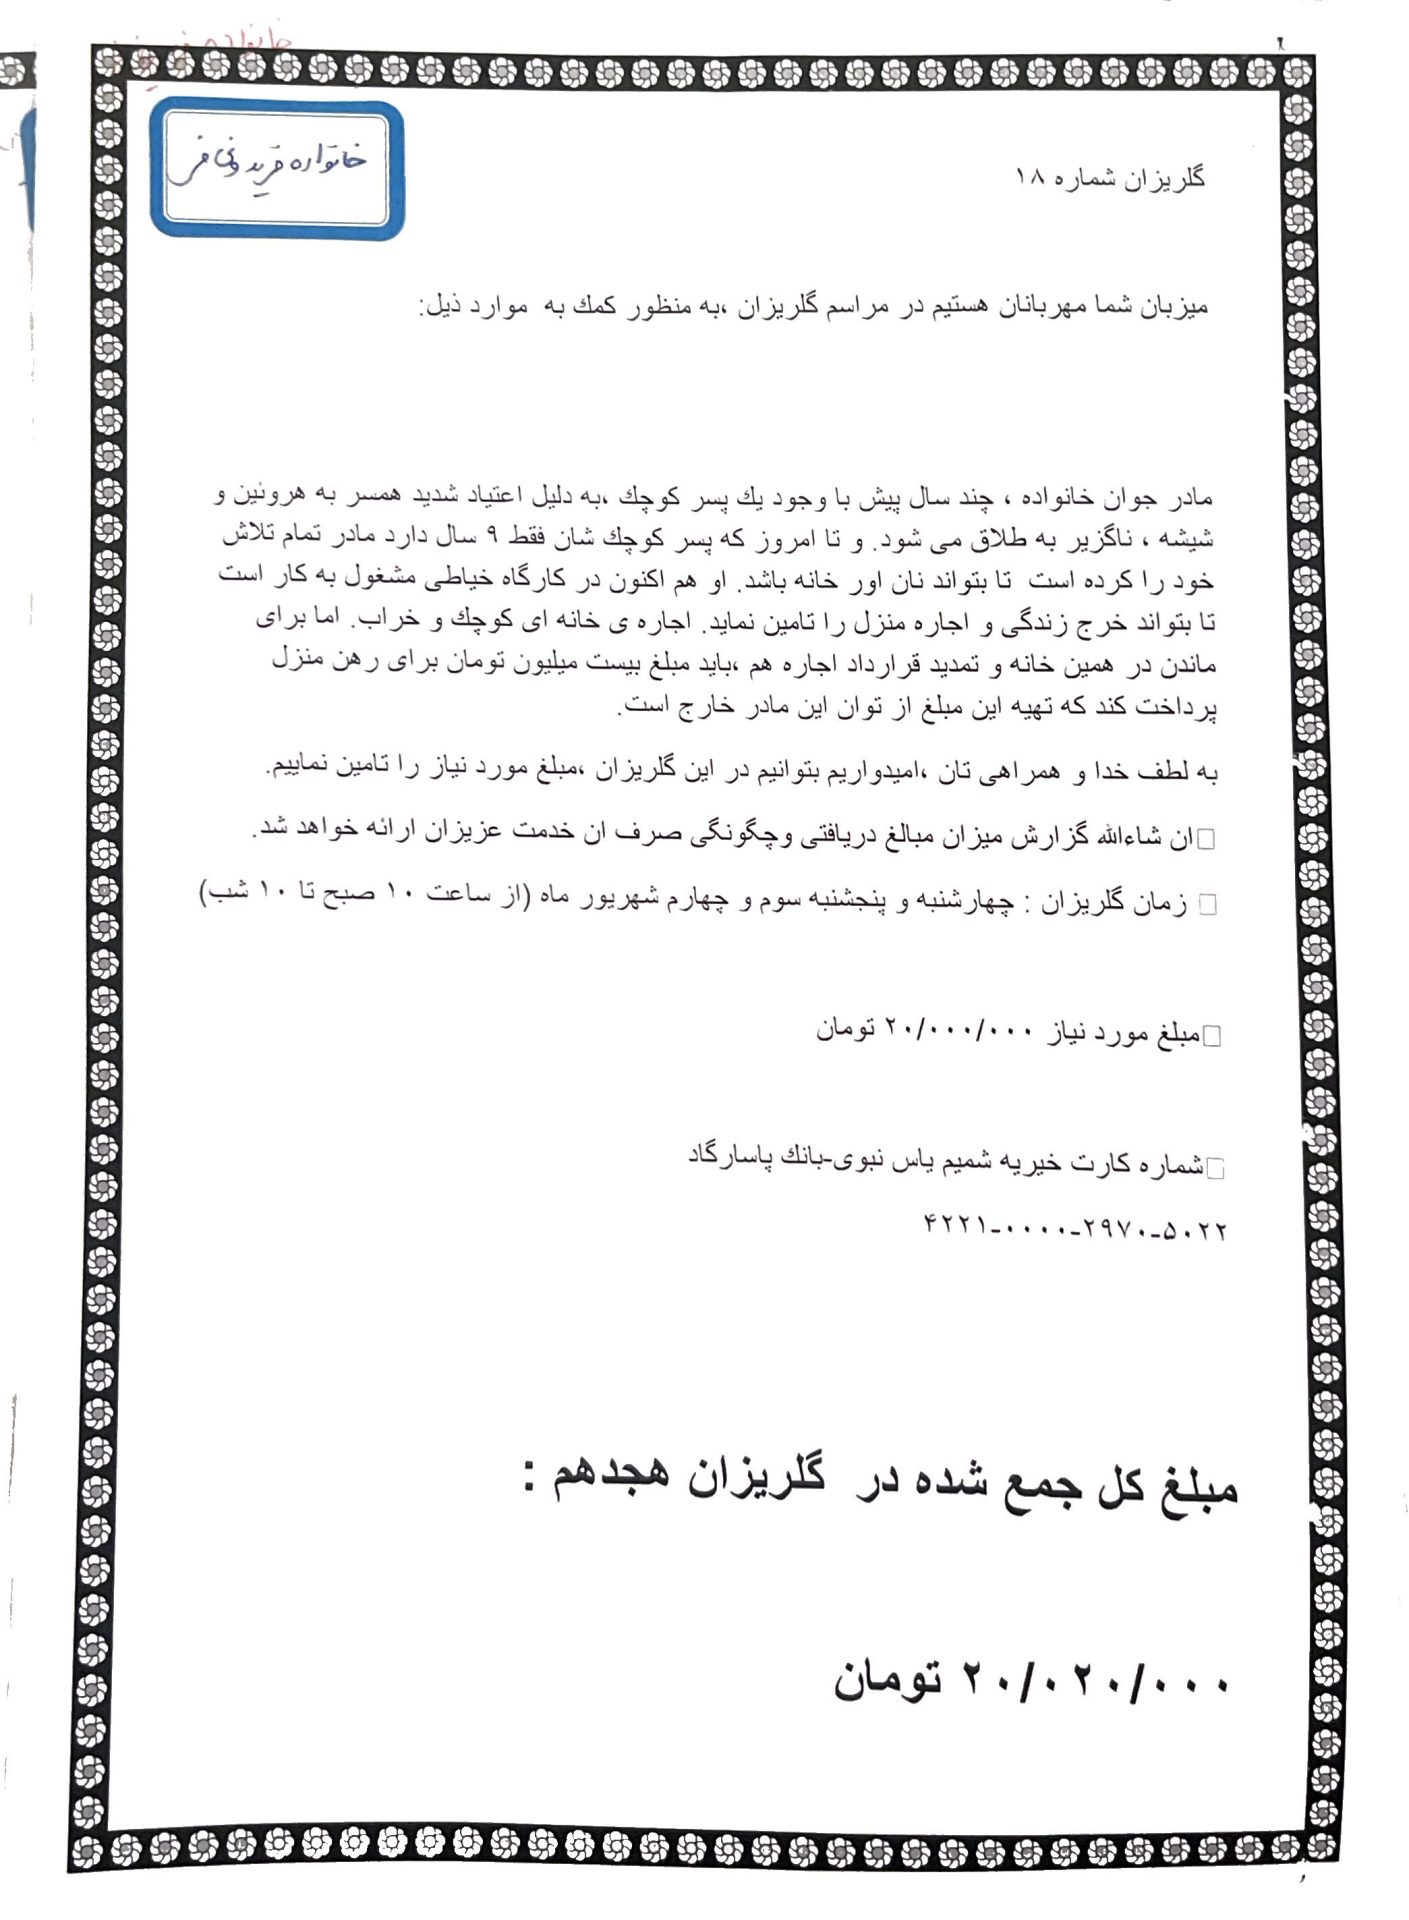 خانواده
گلریزان شماره ۱۸
میزبان شما مهربانان هستیم در مراسم گلریزان ،به منظور كمك به موارد ذیل:
مادر جوان خانواده ، چند سال پیش با وجود یك پسر كوچك ،به دلیل اعتیاد شدید همسر به هروئین و
شیشه ، ناگزیر به طلاق می شود. و تا امروز که پسر كوچك شان فقط ۹ سال دارد مادر تمام تلاش
خود را کرده است تا بتواند نان اور خانه باشد. او هم اکنون در کارگاه خیاطی مشغول به کار است
تا بتواند خرج زندگی و اجاره منزل را تامین نماید. اجاره ی خانه ای كوچك و خراب. اما برای
ماندن در همین خانه و تمدید قرارداد اجاره هم ،باید مبلغ بیست میلیون تومان برای رهن منزل
پرداخت کند که تهیه این مبلغ از توان این مادر خارج است.
به لطف خدا و همراهی تان ،امیدواریم بتوانیم در این گلریزان ،مبلغ مورد نیاز را تامین نماییم.
□ان شاءالله گزارش میزان مبالغ دریافتی وچگونگی صرف ان خدمت عزیزان ارائه خواهد شد.
□ زمان گلریزان : چهارشنبه و پنجشنبه سوم و چهارم شهریور ماه (از ساعت ۱۰ صبح تا ۱۰ شب)
□مبلغ مورد نیاز ۲۰/۰۰۰/۰۰۰ تومان
□شماره کارت خیریه شمیم یاس نبوی-بانك پاسارگاد
۵۰۲۲-۲۹۷۰-۰۰۰۰-۴۲۲۱
مبلغ کل جمع شده در گلریزان هجدهم :
۲۰/۰۲۰/۰۰۰ تومان